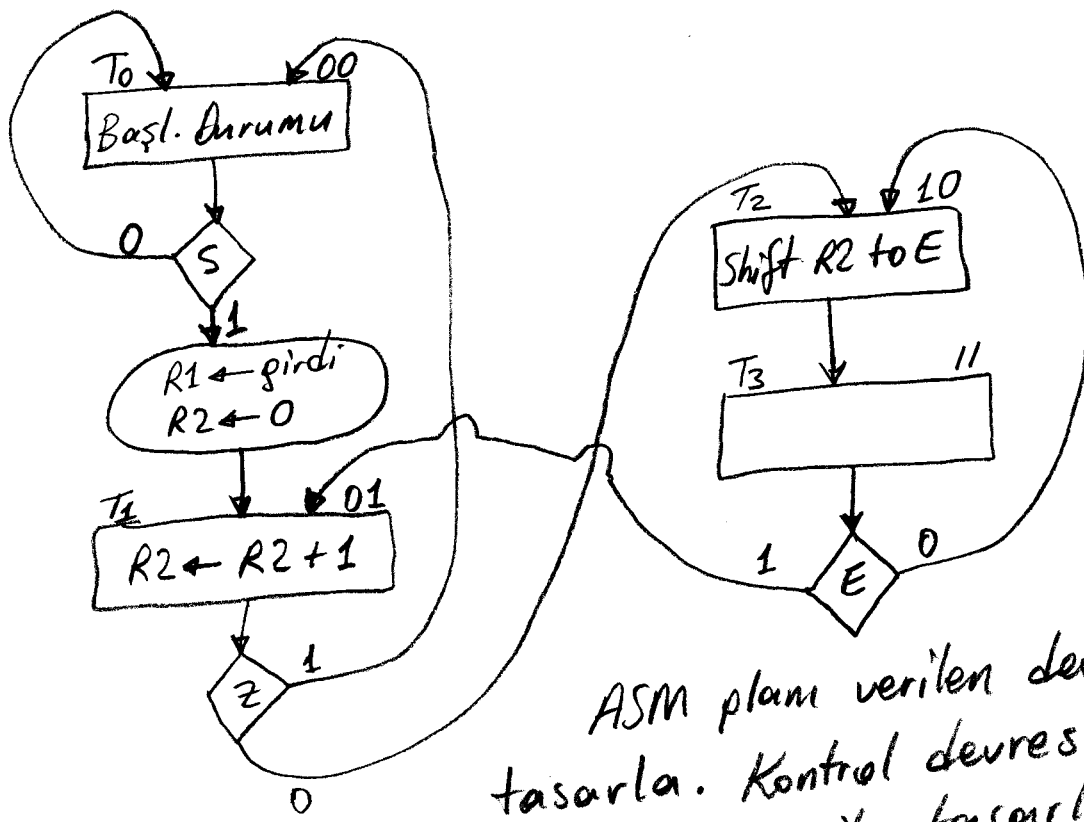 T0 00
Başl. Durumu
0 S
1
R1 ← girdi
R2 ← 0
T1 01
R2 ← R2 + 1
Z 1
0
T2 10
Shift R2 to E
T3 11
1 E 0
ASM planı verilen
tasarla. Kontrol